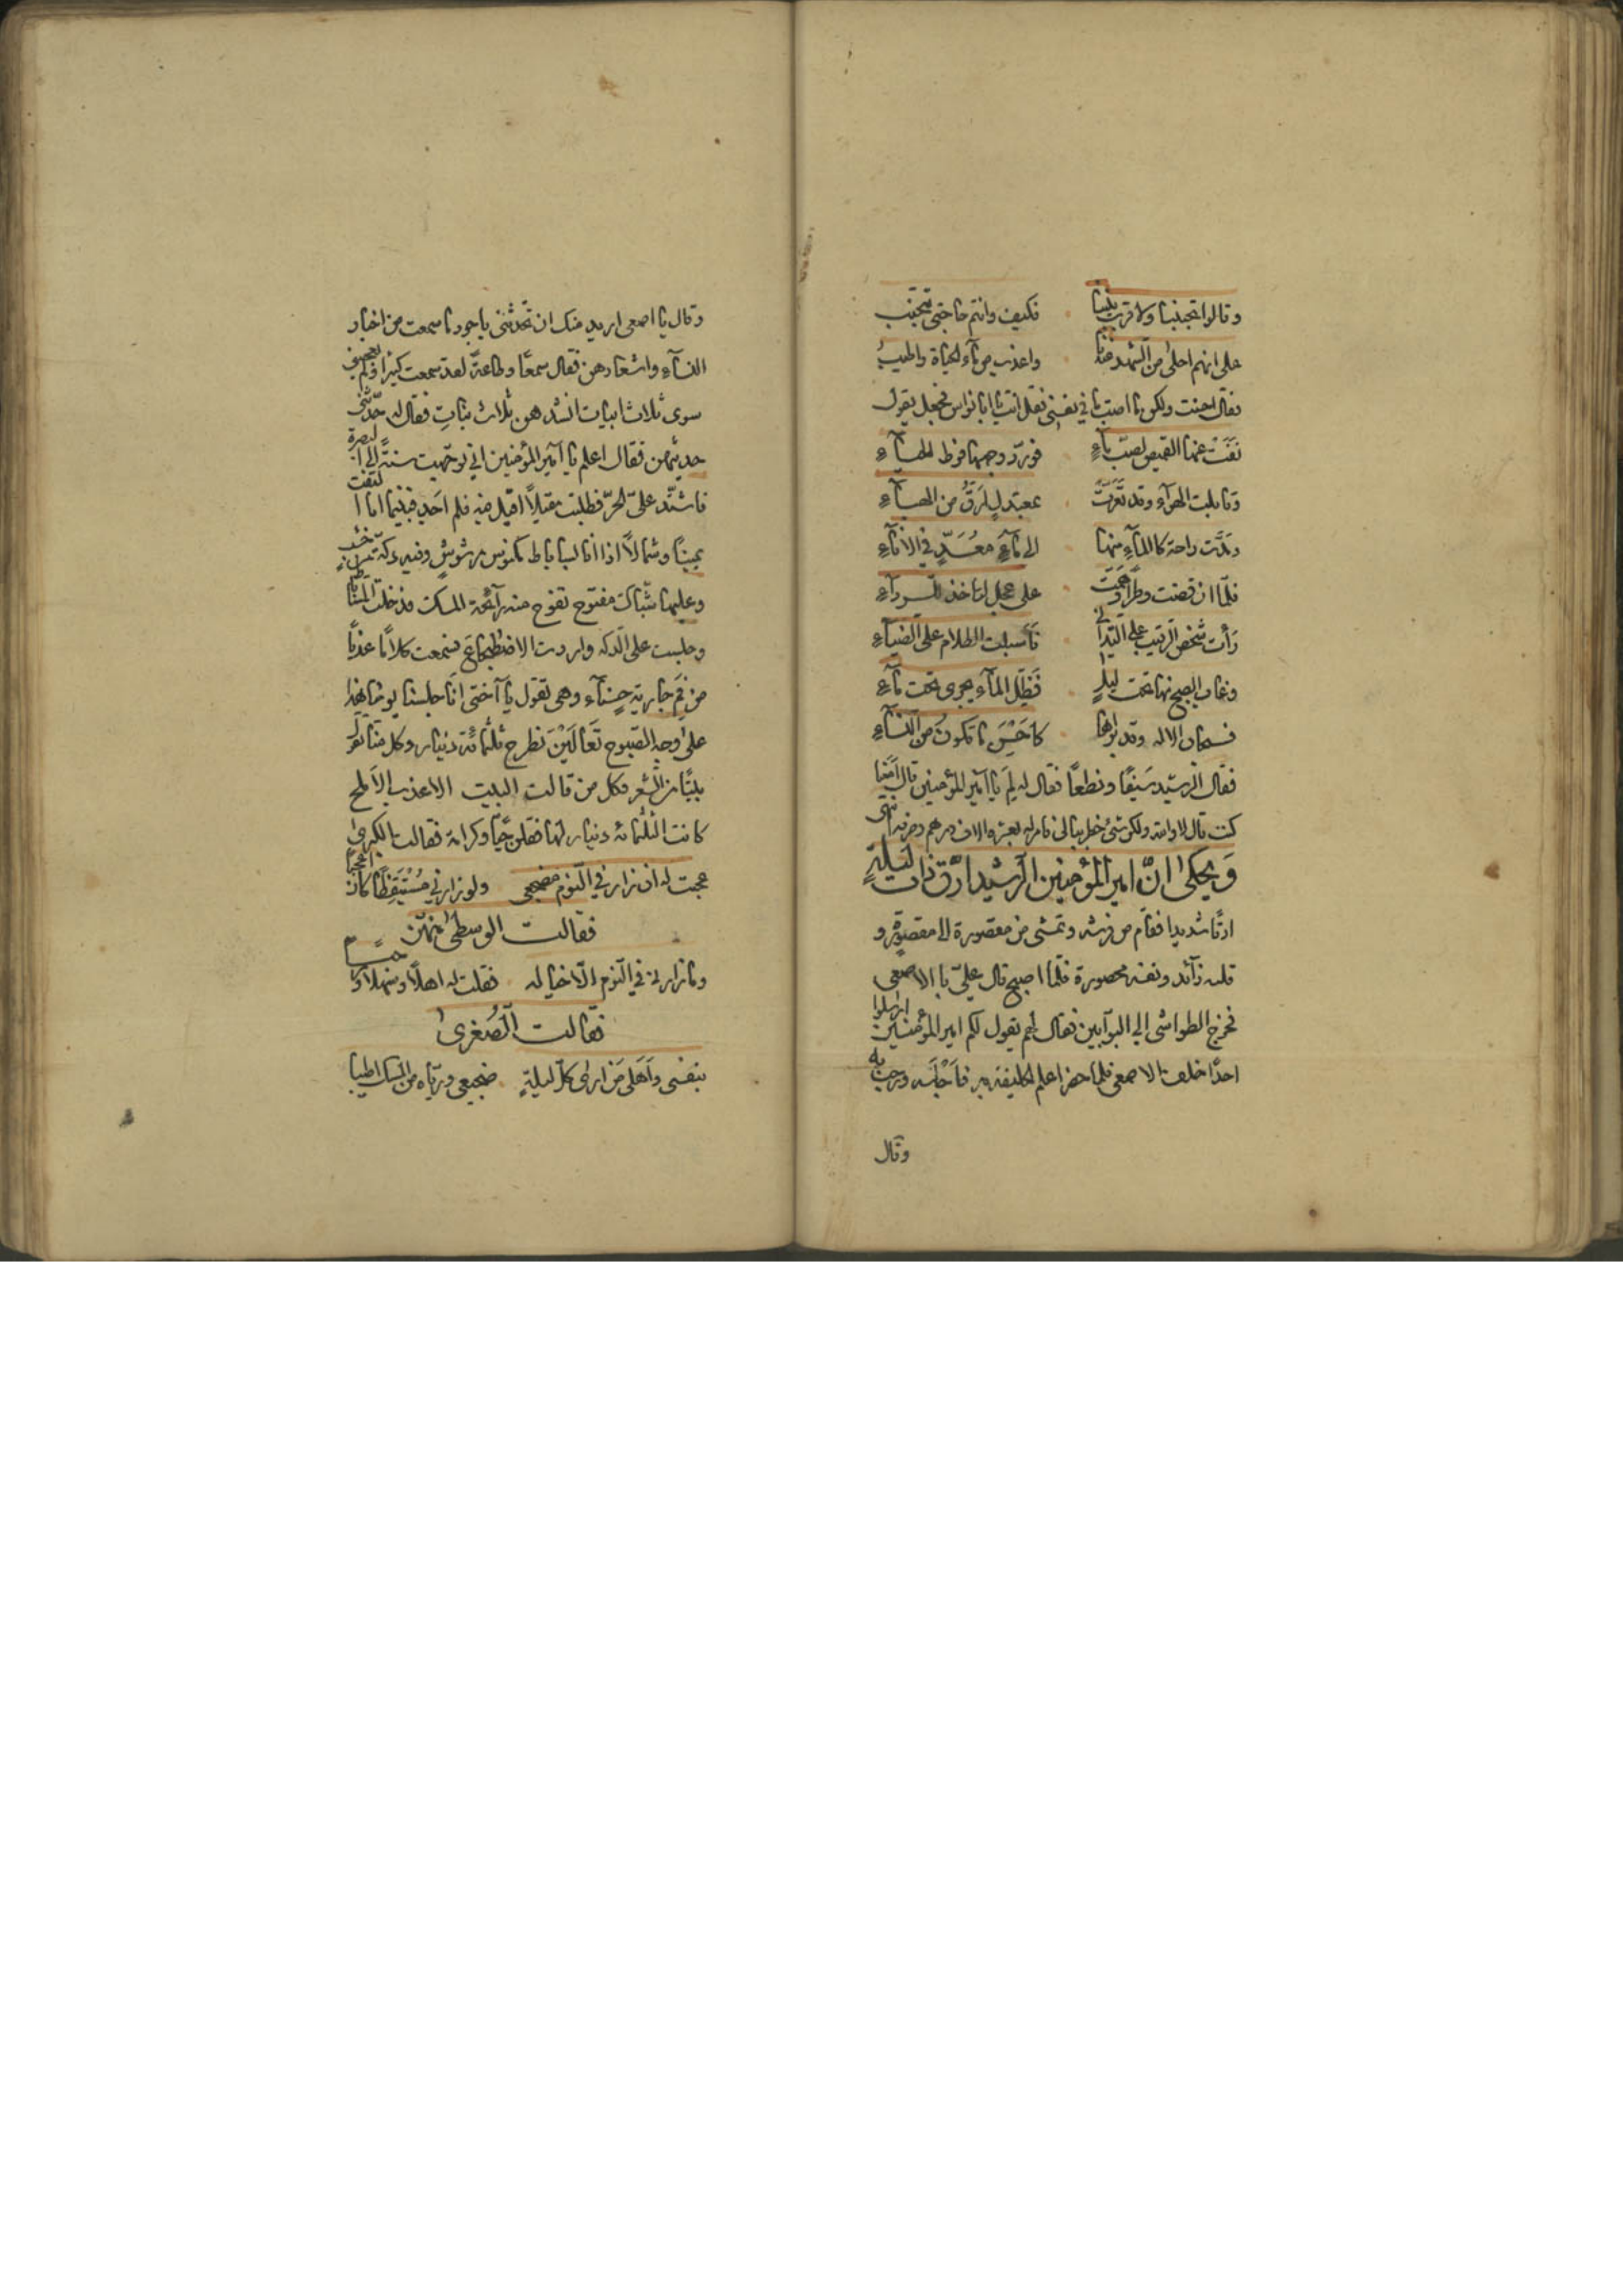 وقالوا تجنبنا ولا قرب بيننا فكيف وانتم حاجتى تتجنب
على انهم احلى من الشهد عندنا واعذب من مآء الحياة واطيبُ
فقال احسنت ولكن ما اصبت ما فى نفسى فقل انت يا ابا نواس فجعل يقول
نَضَتْ عنها القميص لصبّ مآءٍ فورّد وجهها فرط الحيآءِ
وقابلت الهوآء وقد تعرّت بمعتدلٍ ارَقُّ من الهوآءِ
ومدّت راحة كالمآءِ منها الى مآءٍ مُعَدٍّ فى الانآءِ
فلمّا ان قضت وطرًا وهمّت على عجل لتاخذ للردآءِ
رَأت شخص الرّقيب على التّدانى فأسبلت الظلام على الضيآءِ
وغاب الصبح منها تحت ليلٍ فَظَلّ المآء يجرى تحت مآءِ
فسبحان الاله وقد براها كاحْسَنِ ما تكون من النسآءِ
فقال الرشيد سَيفًا ونطعًا فقال له لِمَ يا امير المؤمنين قال أمَعَنا
كنت قال لا والله ولكن شئ خطر ببالى فامر له بعشرة الاف درهم وصرفه انتهى
وَيحكى انّ امير المؤمنين الرشيد ارّق ذات ليلةٍ
ارقًا شديدا فقام من فرشه وتمشى من مقصورة الى مقصورةٍ و
قلقه زآئد ونفسه محصورة فلمّا اصبح قال علىّ بالاصمعى
فخرج الطواشى الى البوّابين فقال لهم يقول لكم امير المؤمنين ارسلوا
احدًا خلف الاصمعى فلما حضر اعلم الخليفة به فاَجْلَسَه ورحب به
وقال
وقال يا اصمعى اريد منك ان تحدثنى باجود ما سمعت من اخبار
النسآءِ واشعارهن فقال سمعًا وطاعةً لقد سمعت كثيرا ولم يعجبنى
سوى ثلاث ابيات انشدهن ثلاث بناتٍ فقال له حدّثنى
حديثهن فقال اعلم يا امير المؤمنين انى توجّهت سنةً الى البصرة
فاشتّد علىّ الحرّ فطلبت مقيلاً اقيل فيه فلم اجد فبينما انا التفت
يمينًا وشمالاً اذا انا بساباط مكنوس مرشوشٍ وفيه دكّة من خشبٍ
وعليها شبّاك مفتوح تفوح منه رآئحة المسك فدخلت السّاباط
وجلست على الدكه واردت الاضطجاع فسمعت كلامًا عذبًا
من فَمِ جارية حسنآء وهى تقول يا اختى انّا جلسنا يومنا هذا
على وجه الصّبوح تَعَالَيْنَ نطرح ثلثمائة دينار وكل منّا تقول
بيتًا من الشعر فكل من قالت البيت الاعذب الاملح
كانت الثلثمائة دينار لها فقلن حبًّا وكرامة فقالت الكبرى
عجبت له ان زار فى النّوم مضجعى ولو زارنى مُسْتَيقِظًا كان اعجبا
فقالت الوسطى منهن
وما زارنى فى النوم الّا خياله فقلت له اهلاً وسهلاً ومرحبا
فقالت الصُغرى
بنفسى واَهلى مَن ارى كلّ ليلةٍ ضجيعى وريّاه من المسك اطيبا